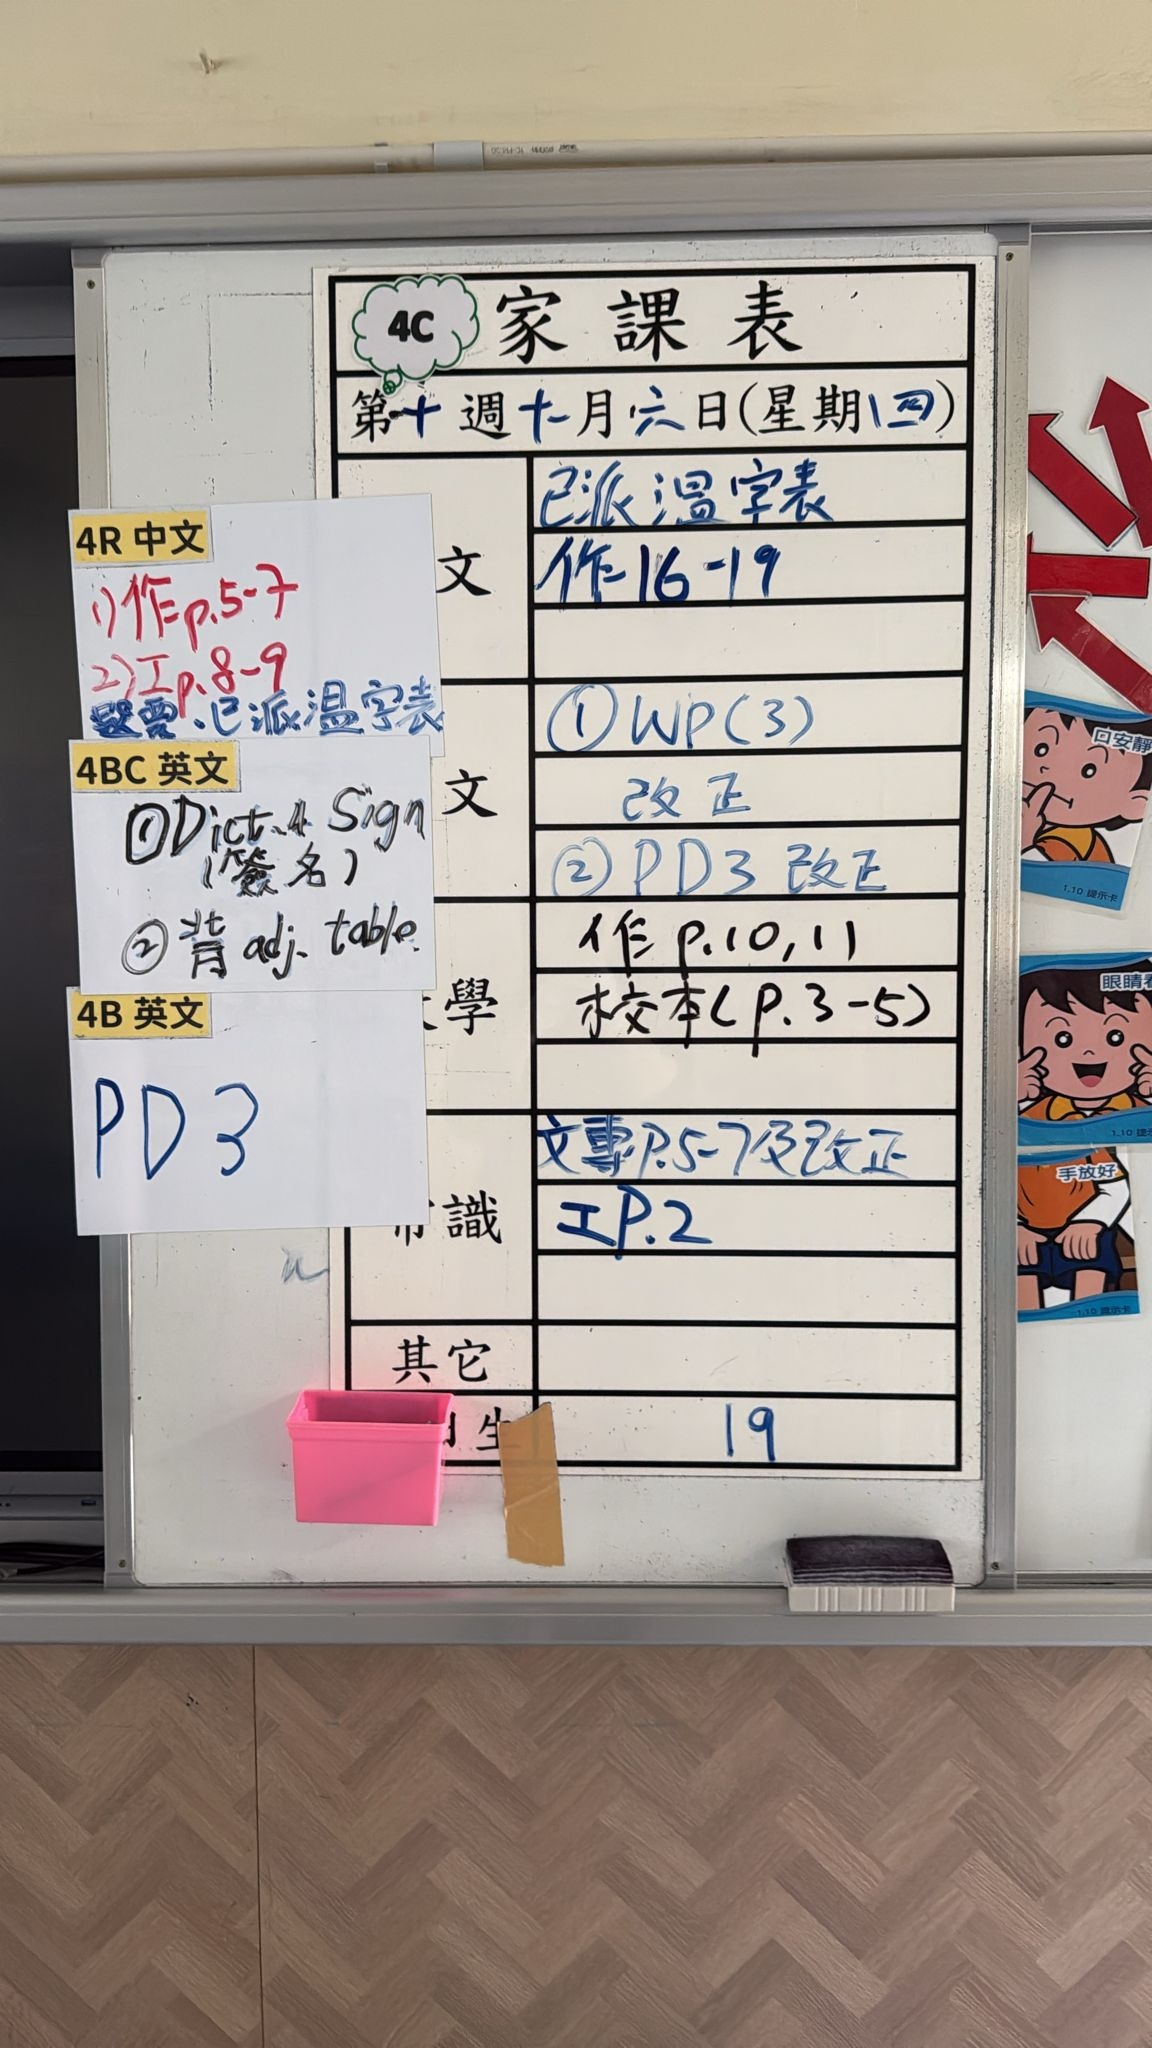 4C
家課表
第十週十一月六日(星期四)
文
已派溫字表
作16-19
文
①WP(3)
改正
②PD3 改正
學
作 p.10,11
校本(p.3-5)
常識
文專P.5-7及改正
工P.2
其它
生
19
4R 中文
1)作p.5-7
2)工p.8-9
已派溫字表
4BC 英文
①Dict.4 Sign
(簽名)
②背 adj. table.
4B 英文
PD3
口安靜
1.10 提示卡
眼睛看
1.10 提示
手放好
1.10 提示卡